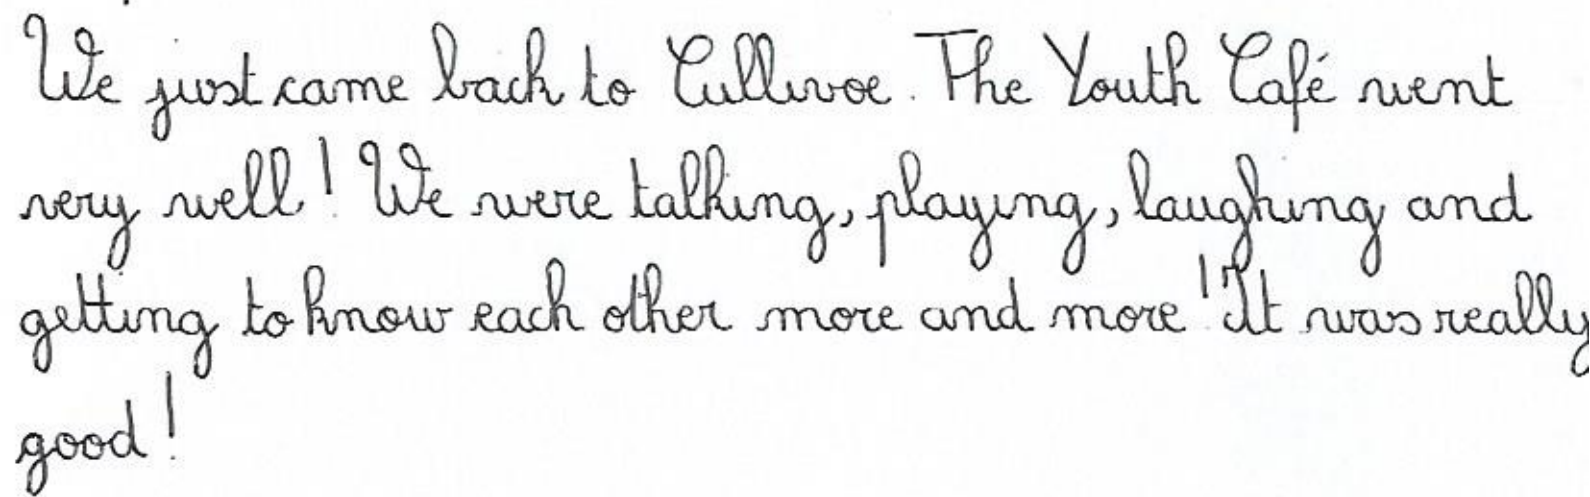 We just came back to Cullivoe. The Youth Café went
very well! We were talking, playing, laughing and
getting to know each other more and more! It was really
good!